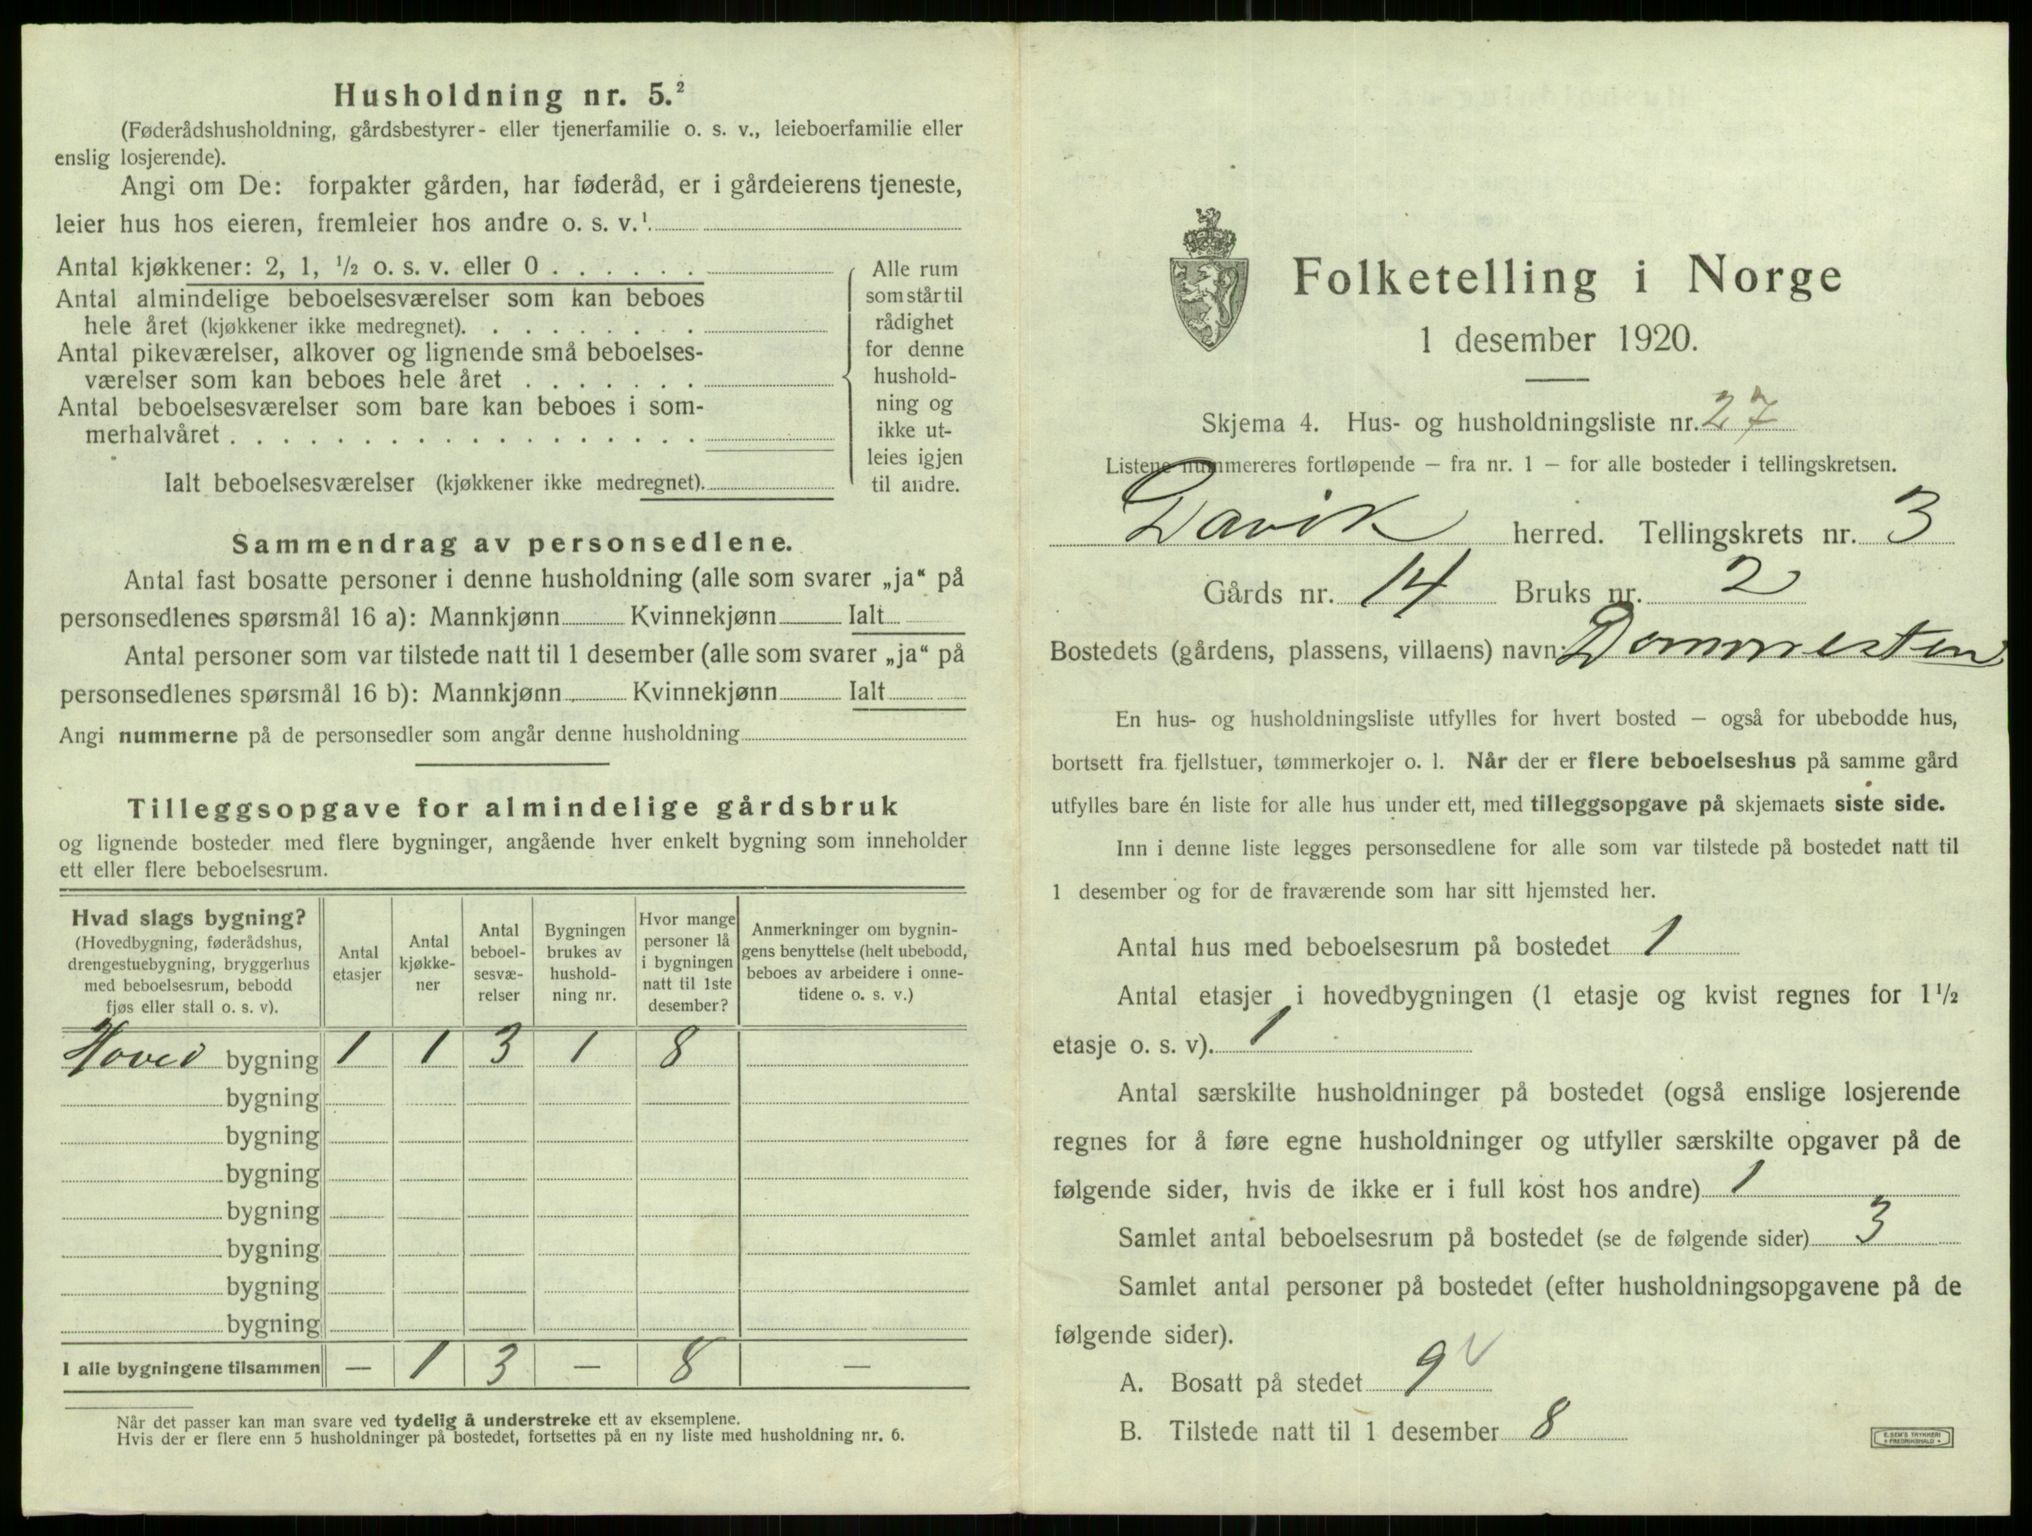 Husholdning nr. 5.²
(Føderådshusholdning, gårdsbestyrer- eller tjenerfamilie o. s. v., leieboerfamilie eller
enslig losjerende).
Angi om De: forpakter gården, har føderåd, er i gårdeierens tjeneste,
leier hus hos eieren, fremleier hos andre o. s. v.¹
Antal kjøkkener: 2, 1, ½ o. s. v. eller 0 . . . . . .
Antal almindelige beboelsesværelser som kan beboes
hele året (kjøkkener ikke medregnet). . . . . . . . .
Antal pikeværelser, alkover og lignende små beboelses-
værelser som kan beboes hele året . . . . . . .
Antal beboelsesværelser som bare kan beboes i som-
merhalvåret . . . . . . . . . . . . . . . . . .
Ialt beboelsesværelser (kjøkkener ikke medregnet).
Alle rum
som står til
rådighet
for denne
hushold-
ning og
ikke ut-
leies igjen
til andre.
Sammendrag av personsedlene.
Antal fast bosatte personer i denne husholdning (alle som svarer „ja“ på
personsedlenes spørsmål 16 a): Mannkjønn Kvinnekjønn Ialt
Antal personer som var tilstede natt til 1 desember (alle som svarer „ja“ på
personsedlenes spørsmål 16 b): Mannkjønn Kvinnekjønn Ialt
Angi nummerne på de personsedler som angår denne husholdning
Tilleggsopgave for almindelige gårdsbruk
og lignende bosteder med flere bygninger, angående hver enkelt bygning som inneholder
ett eller flere beboelsesrum.
Hvad slags bygning?
(Hovedbygning, føderådshus,
drengestuebygning, bryggerhus
med beboelsesrum, bebodd
fjøs eller stall o. s. v).
Antal
etasjer
Antal
kjøkke-
ner
Antal
beboel-
sesvæ-
relser
Bygningen
brukes av
hushold-
ning nr.
Hvor mange
personer lå
i bygningen
natt til 1ste
desember?
Anmerkninger om bygnin-
gens benyttelse (helt ubebodd,
beboes av arbeidere i onne-
tidene o. s. v.)
Hoved bygning 1 1 3 1 8
bygning
bygning
bygning
bygning
bygning
bygning
bygning
I alle bygningene tilsammen — 1 3 — 8 —
Når det passer kan man svare ved tydelig å understreke ett av eksemplene.
Hvis der er flere enn 5 husholdninger på bostedet, fortsettes på en ny liste med husholdning nr. 6.
Folketelling i Norge
1 desember 1920.
Skjema 4. Hus- og husholdningsliste nr. 27
Listene nummereres fortløpende – fra nr. 1 – for alle bosteder i tellingskretsen.
Davik herred. Tellingskrets nr. 3
Gårds nr. 14 Bruks nr. 2
Bostedets (gårdens, plassens, villaens) navn: Dommesten
En hus- og husholdningsliste utfylles for hvert bosted – også for ubebodde hus,
bortsett fra fjellstuer, tømmerkojer o. l. Når der er flere beboelseshus på samme gård
utfylles bare én liste for alle hus under ett, med tilleggsopgave på skjemaets siste side.
Inn i denne liste legges personsedlene for alle som var tilstede på bostedet natt til
1 desember og for de fraværende som har sitt hjemsted her.
Antal hus med beboelsesrum på bostedet 1
Antal etasjer i hovedbygningen (1 etasje og kvist regnes for 1½
etasje o. s. v). 1
Antal særskilte husholdninger på bostedet (også enslige losjerende
regnes for å føre egne husholdninger og utfyller særskilte opgaver på de
følgende sider, hvis de ikke er i full kost hos andre) 1
Samlet antal beboelsesrum på bostedet (se de følgende sider) 3
Samlet antal personer på bostedet (efter husholdningsopgavene på de
følgende sider).
A. Bosatt på stedet 9 ✓
B. Tilstede natt til 1 desember 8
E. SEM'S TRYKKERI
FREDRIKSHALD